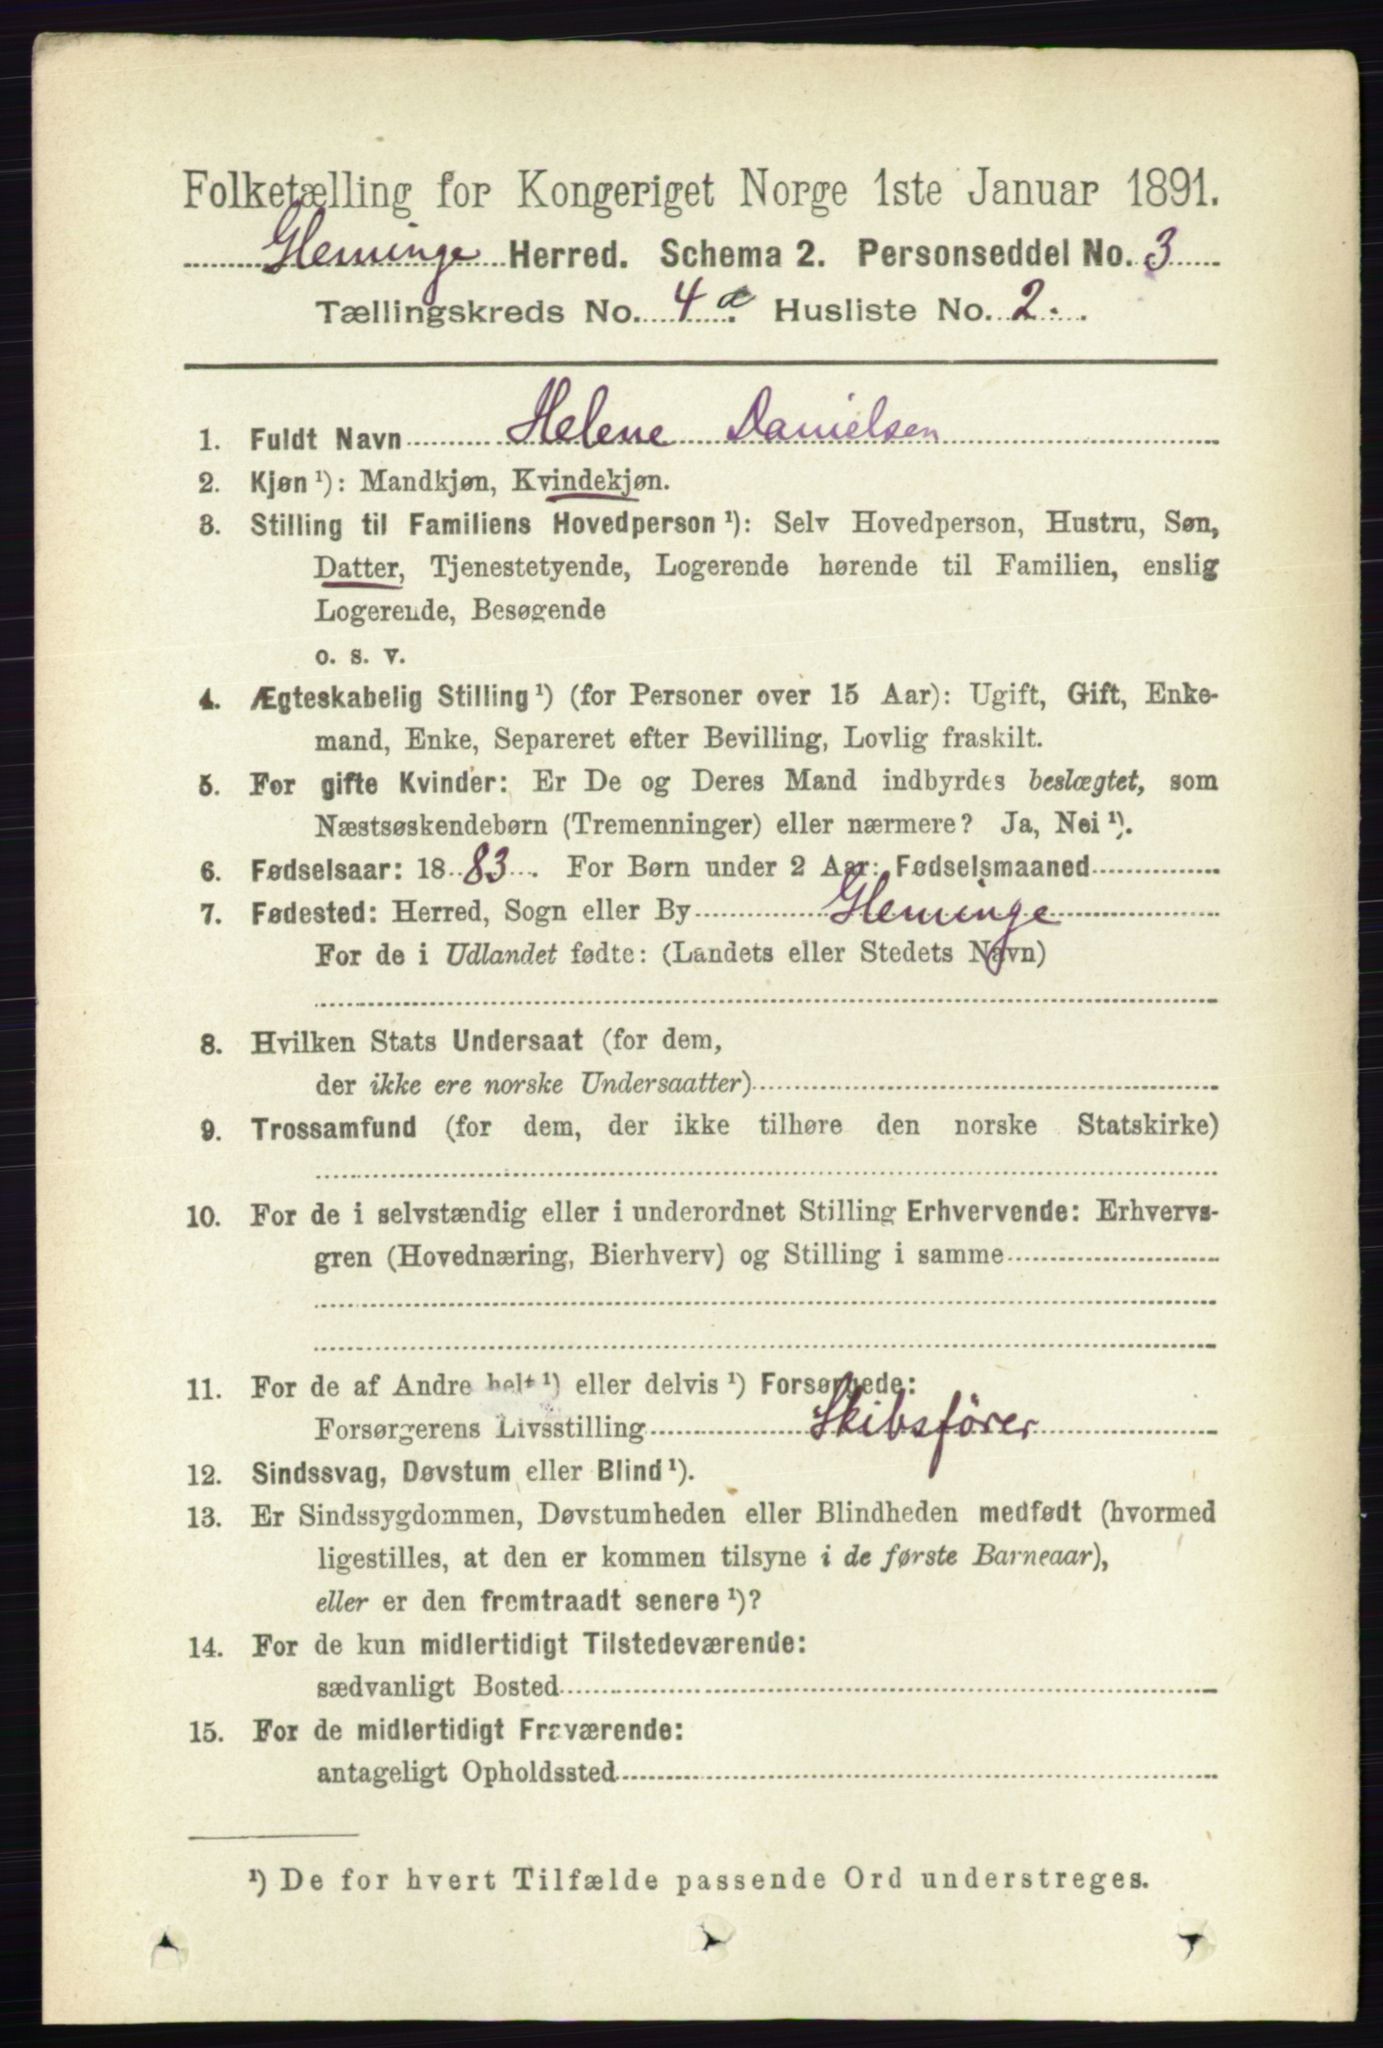 Folketælling for Kongeriget Norge 1ste Januar 1891.
Glemminge Herred. Schema 2. Personseddel No. 3
Tællingskreds No. 4 a. Husliste No. 2.
1. Fuldt Navn Helene Danielsen
2. Kjøn ¹): Mandkjøn, Kvindekjøn.
3. Stilling til Familiens Hovedperson ¹): Selv Hovedperson, Hustru, Søn,
Datter, Tjenestetyende, Logerende hørende til Familien, enslig
Logerende, Besøgende
o. s. v.
4. Ægteskabelig Stilling ¹) (for Personer over 15 Aar): Ugift, Gift, Enke-
mand, Enke, Separeret efter Bevilling, Lovlig fraskilt.
5. For gifte Kvinder: Er De og Deres Mand indbyrdes beslægtet, som
Næstsøskendebørn (Tremenninger) eller nærmere? Ja, Nei ¹).
6. Fødselsaar: 1883. For Børn under 2 Aar: Fødselsmaaned
7. Fødested: Herred, Sogn eller By Gleminge
For de i Udlandet fødte: (Landets eller Stedets Navn)
8. Hvilken Stats Undersaat (for dem,
der ikke ere norske Undersaatter)
9. Trossamfund (for dem, der ikke tilhøre den norske Statskirke)
10. For de i selvstændig eller i underordnet Stilling Erhvervende: Erhvervs-
gren (Hovednæring, Bierhverv) og Stilling i samme
11. For de af Andre helt ¹) eller delvis ¹) Forsørgede:
Forsørgerens Livsstilling Skibsförer
12. Sindssvag, Døvstum eller Blind ¹).
13. Er Sindssygdommen, Døvstumheden eller Blindheden medfødt (hvormed
ligestilles, at den er kommen tilsyne i de første Barneaar),
eller er den fremtraadt senere ¹)?
14. For de kun midlertidigt Tilstedeværende:
sædvanligt Bosted
15. For de midlertidigt Fraværende:
antageligt Opholdssted
¹) De for hvert Tilfælde passende Ord understreges.